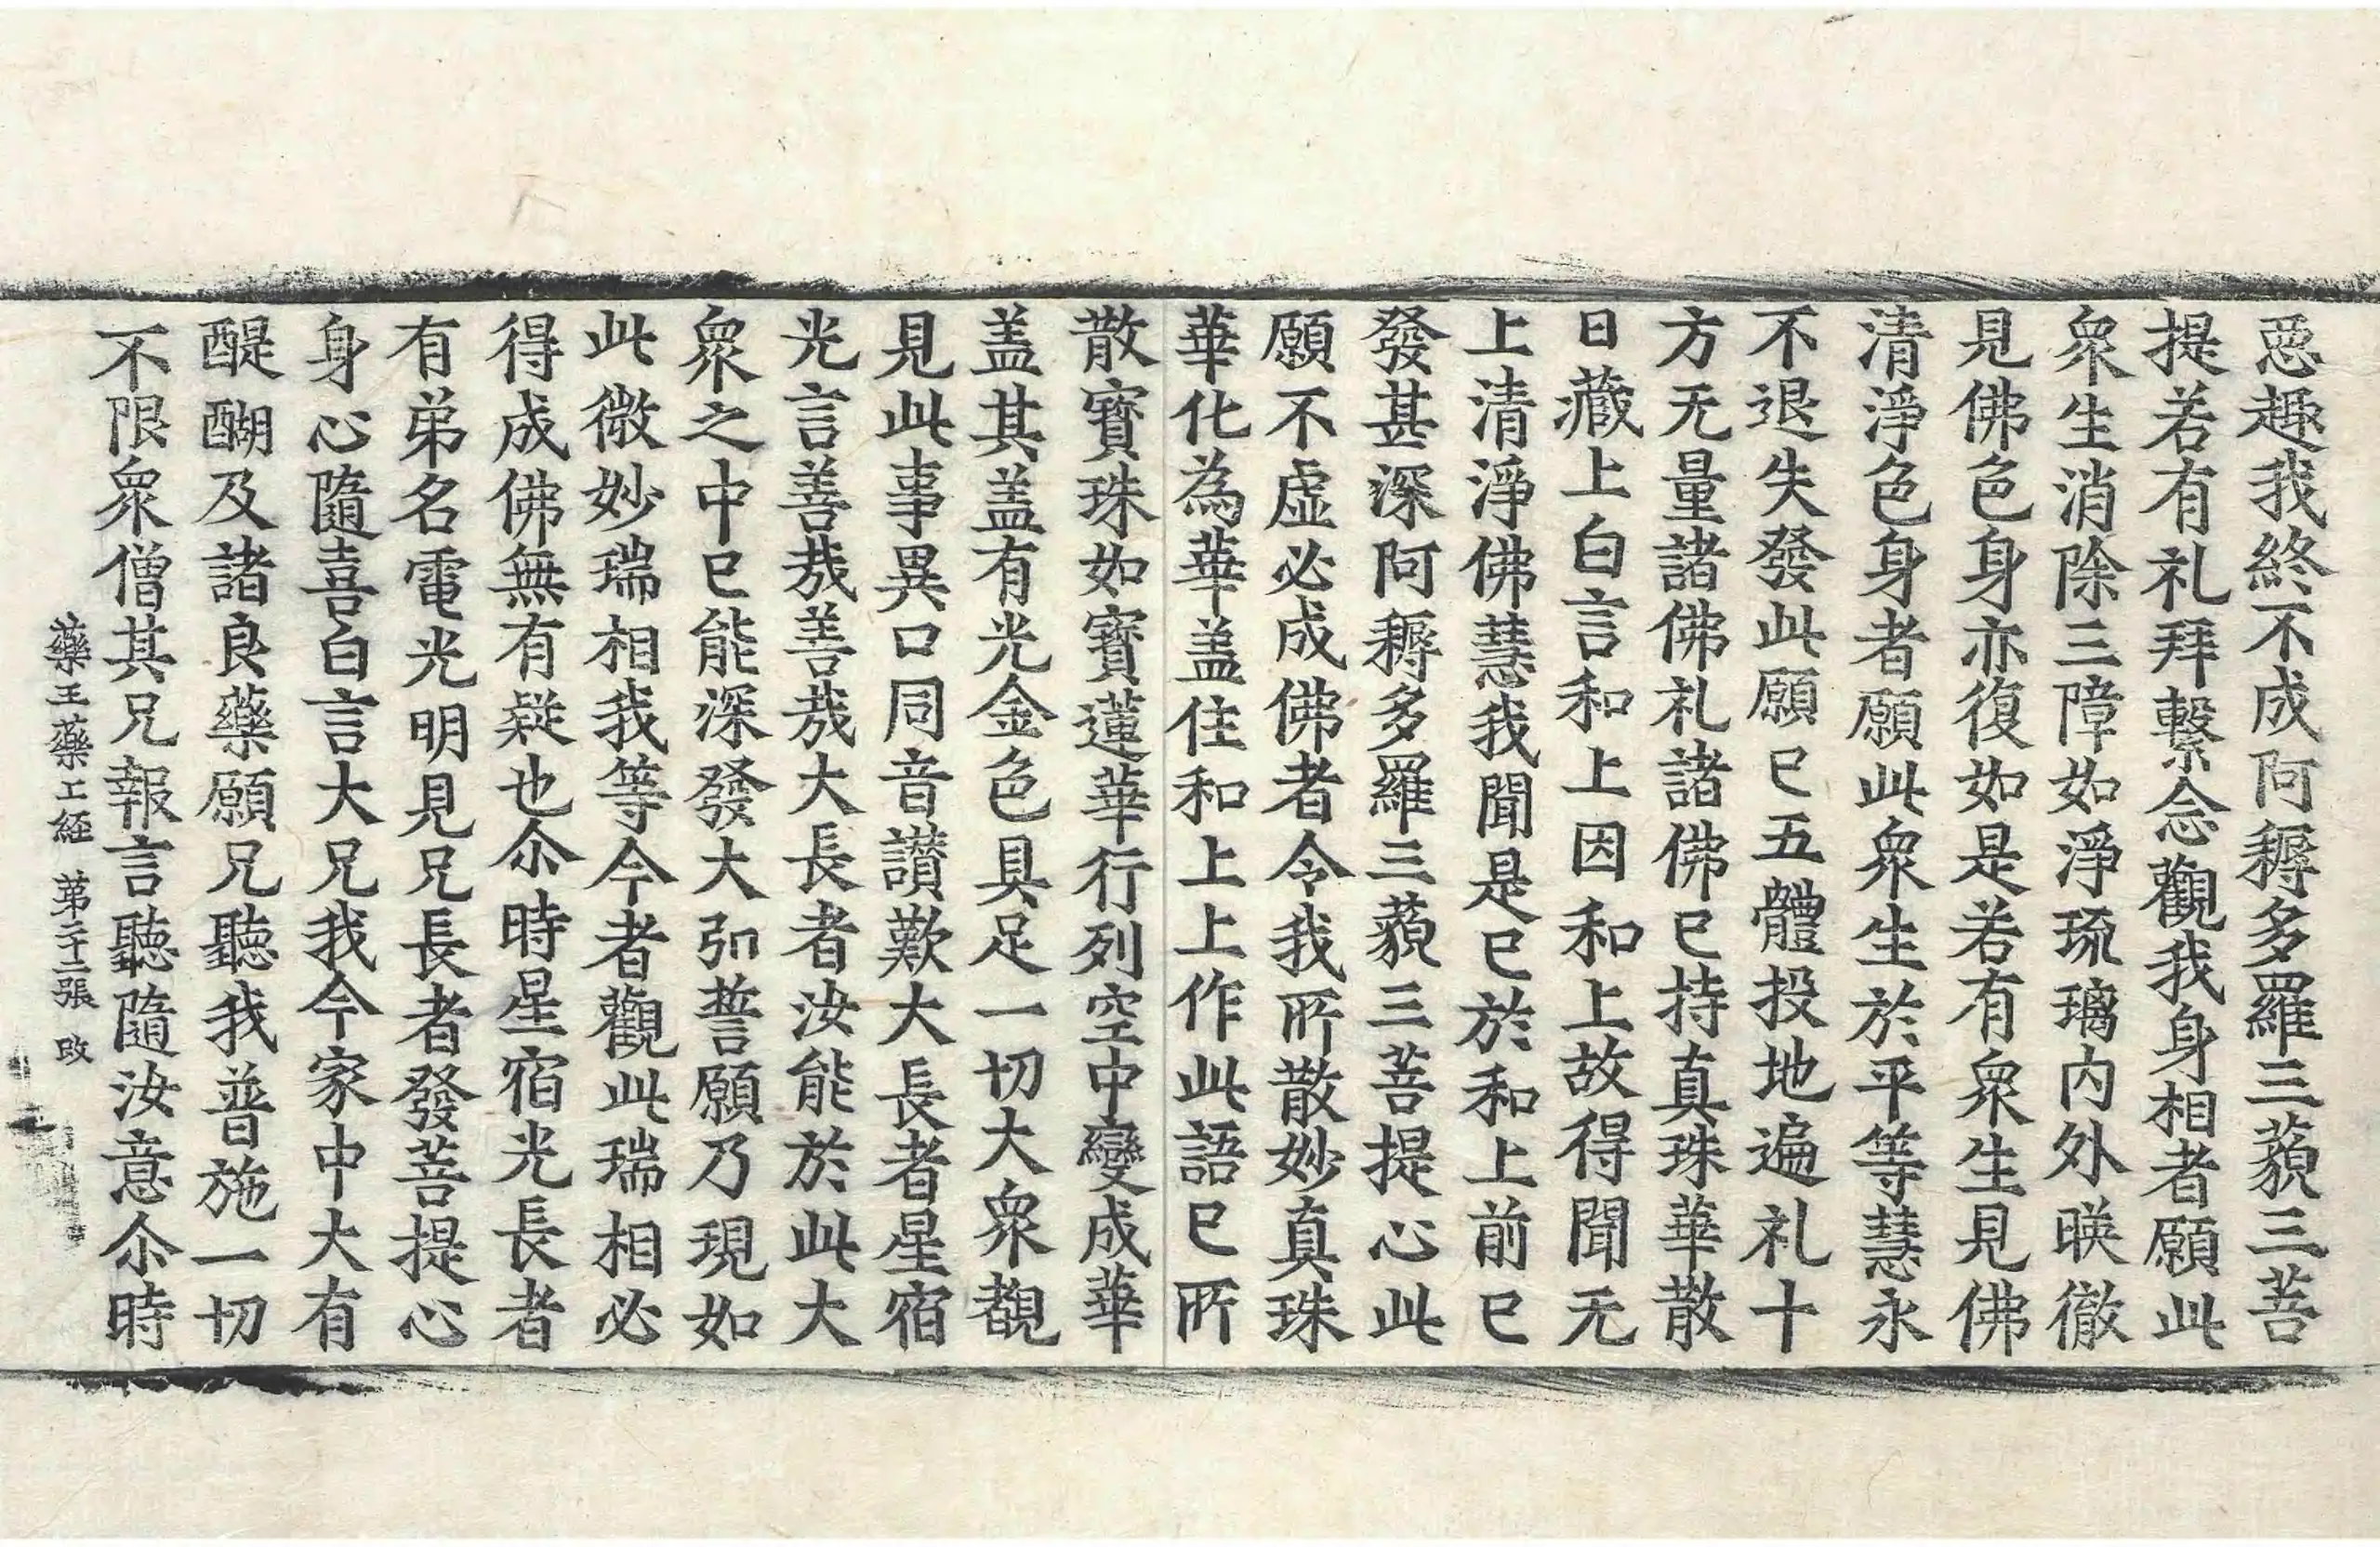 惡趣我終不成阿耨多羅三藐三菩
提若有礼拜繫念觀我身相者願此
衆生消除三障如淨琉璃内外暎徹
見佛色身亦復如是若有衆生見佛
清淨色身者願此衆生於平等慧永
不退失發此願已五體投地遍礼十
方无量諸佛礼諸佛已持真珠華散
日藏上白言和上因和上故得聞无
上清淨佛慧我聞是已於和上前已
發甚深阿耨多羅三藐三菩提心此
願不虚必成佛者令我所散妙真珠
華化為華盖住和上上作此語已所
散寶珠如寶蓮華行列空中變成華
盖其盖有光金色具足一切大衆覩
見此事異口同音讃歎大長者星宿
光言善哉善哉大長者汝能於此大
衆之中已能深發大弘誓願乃現如
此微妙瑞相我等今者觀此瑞相必
得成佛無有疑也尒時星宿光長者
有弟名電光明見兄長者發菩提心
身心隨喜白言大兄我今家中大有
醍醐及諸良藥願兄聽我普施一切
不限衆僧其兄報言聽隨汝意尒時
藥王藥上経 第二十三張 改